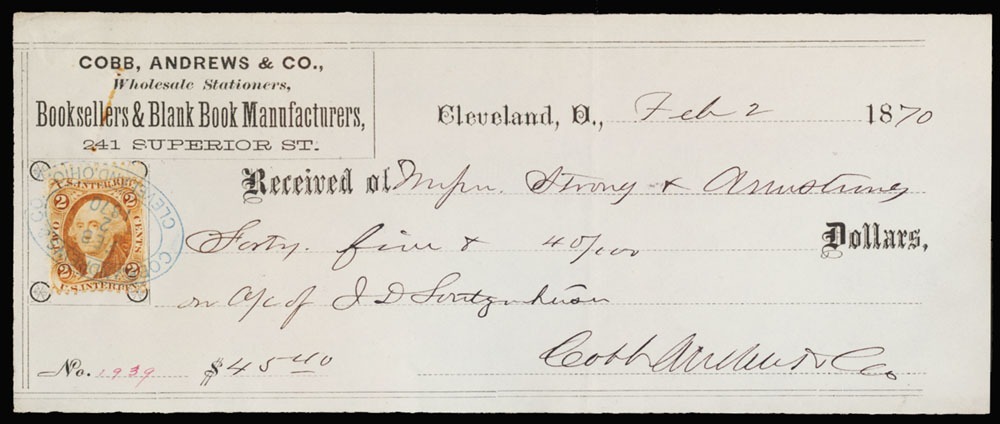 COBB, ANDREWS & CO.,
Wholesale Stationers,
Booksellers & Blank Book Manufacturers,
241 SUPERIOR ST.
Cleveland, O., Feb 2 1870
Received of Messrs. Strong & Armstrong
Forty five & 40/100 Dollars,
on a/c of J D
No. 1939 $45 40
Cobb Andrews & Co
U.S. INTER. REV.
2 2
TWO CENTS
2 2
U.S. INTER. REV.
COBB, ANDREWS & CO.
CLEVELAND, OHIO.
FEB
2
1870